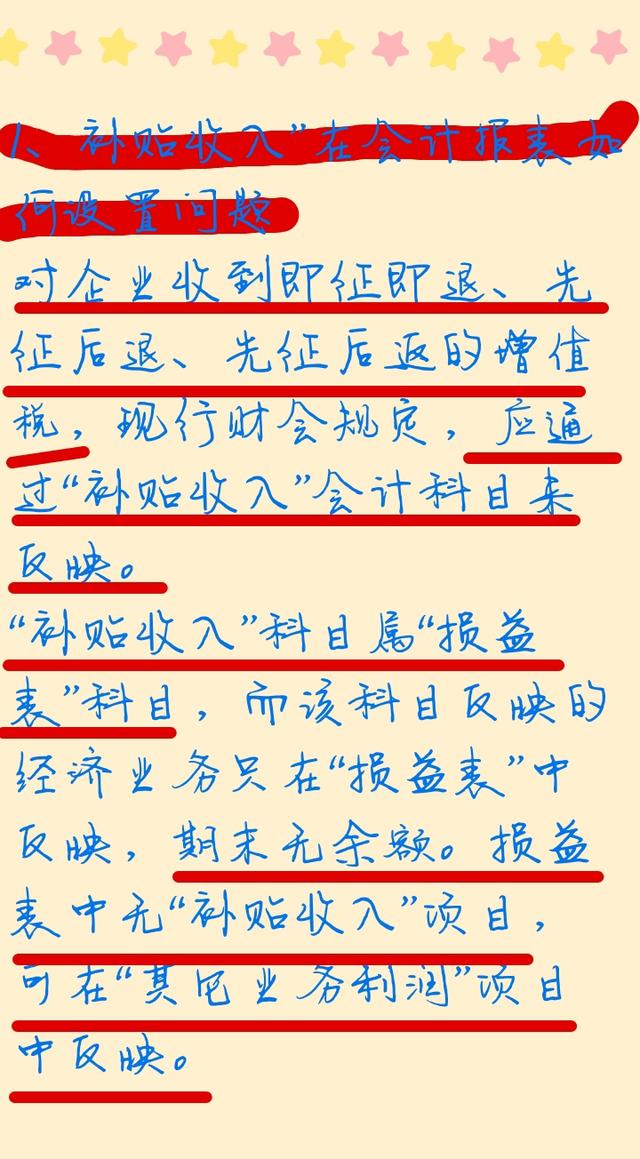 1、补贴收入”在会计报表如
何设置问题
对企业收到即征即退、先
征后退、先征后返的增值
税，现行财会规定，应通
过“补贴收入”会计科目来
反映。
“补贴收入”科目属“损益
表”科目，而该科目反映的
经济业务只在“损益表”中
反映，期末无余额。损益
表中无“补贴收入”项目，
可在“其它业务利润”项目
中反映。